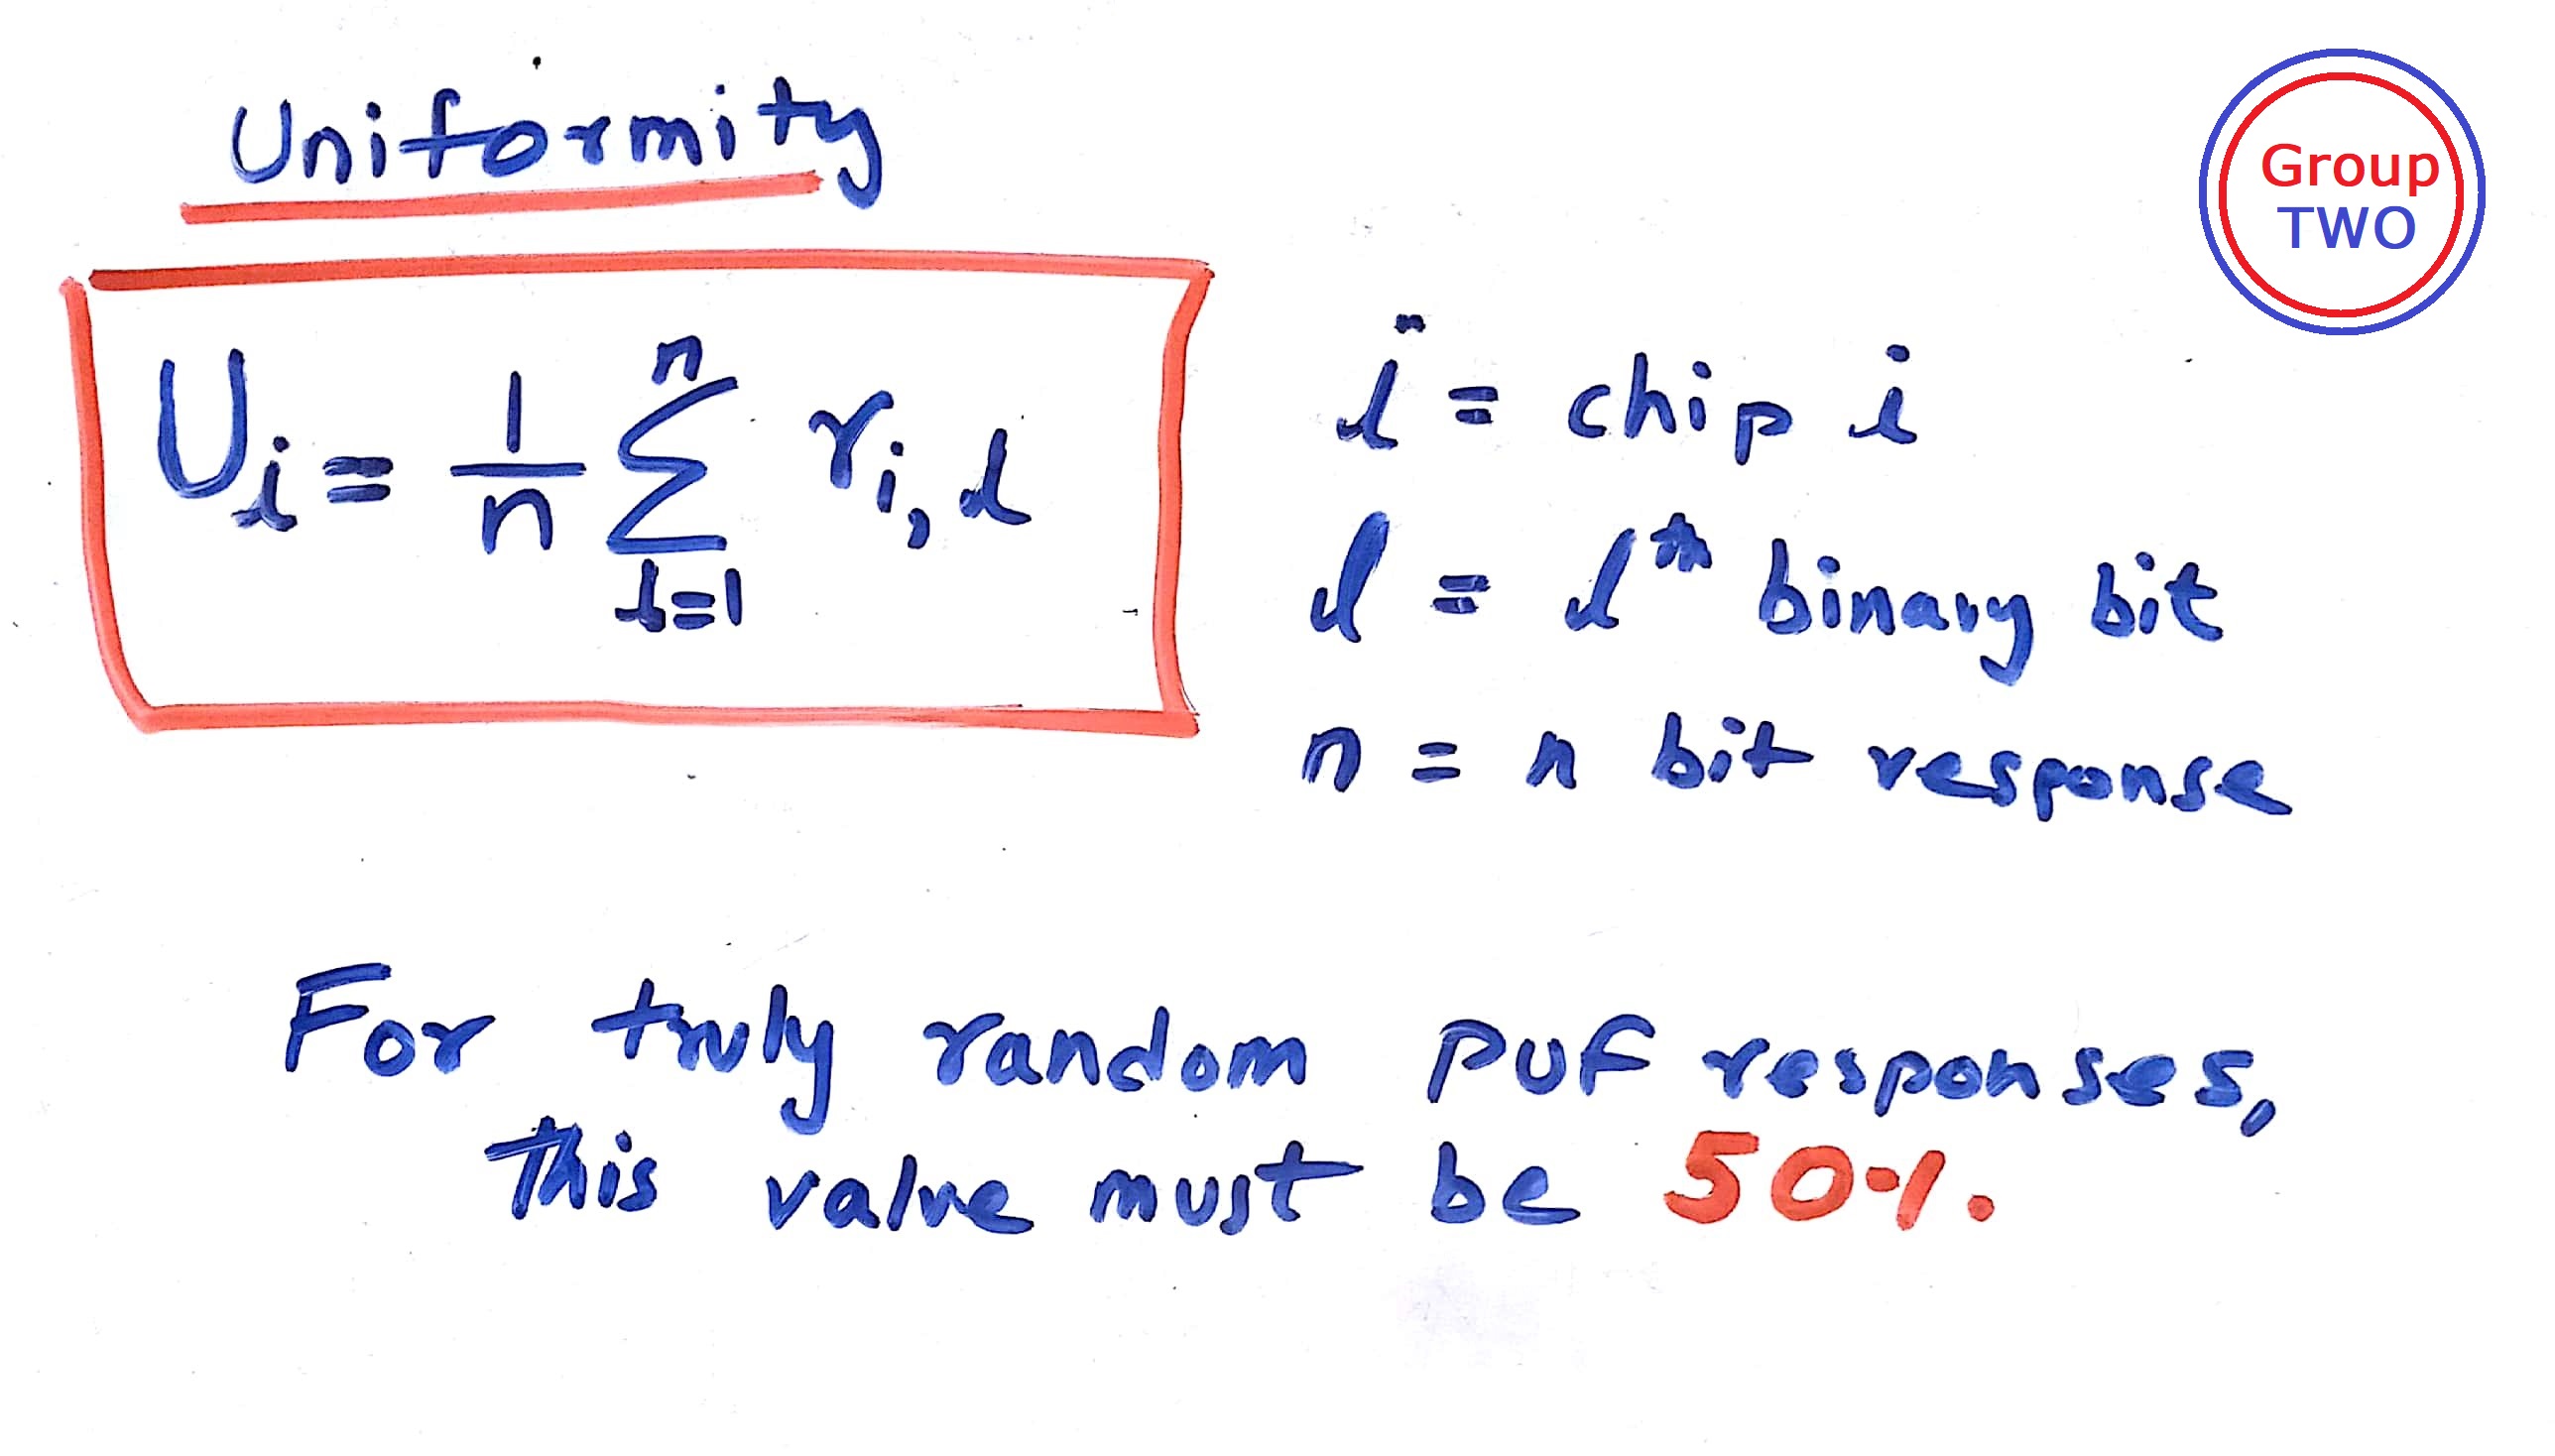 Uniformity
Group
TWO
U_i = 1/n Σ_{l=1}^{n} r_{i,l}
i = chip i
l = l^th binary bit
n = n bit response
For truly random PUF responses,
This value must be 50%.